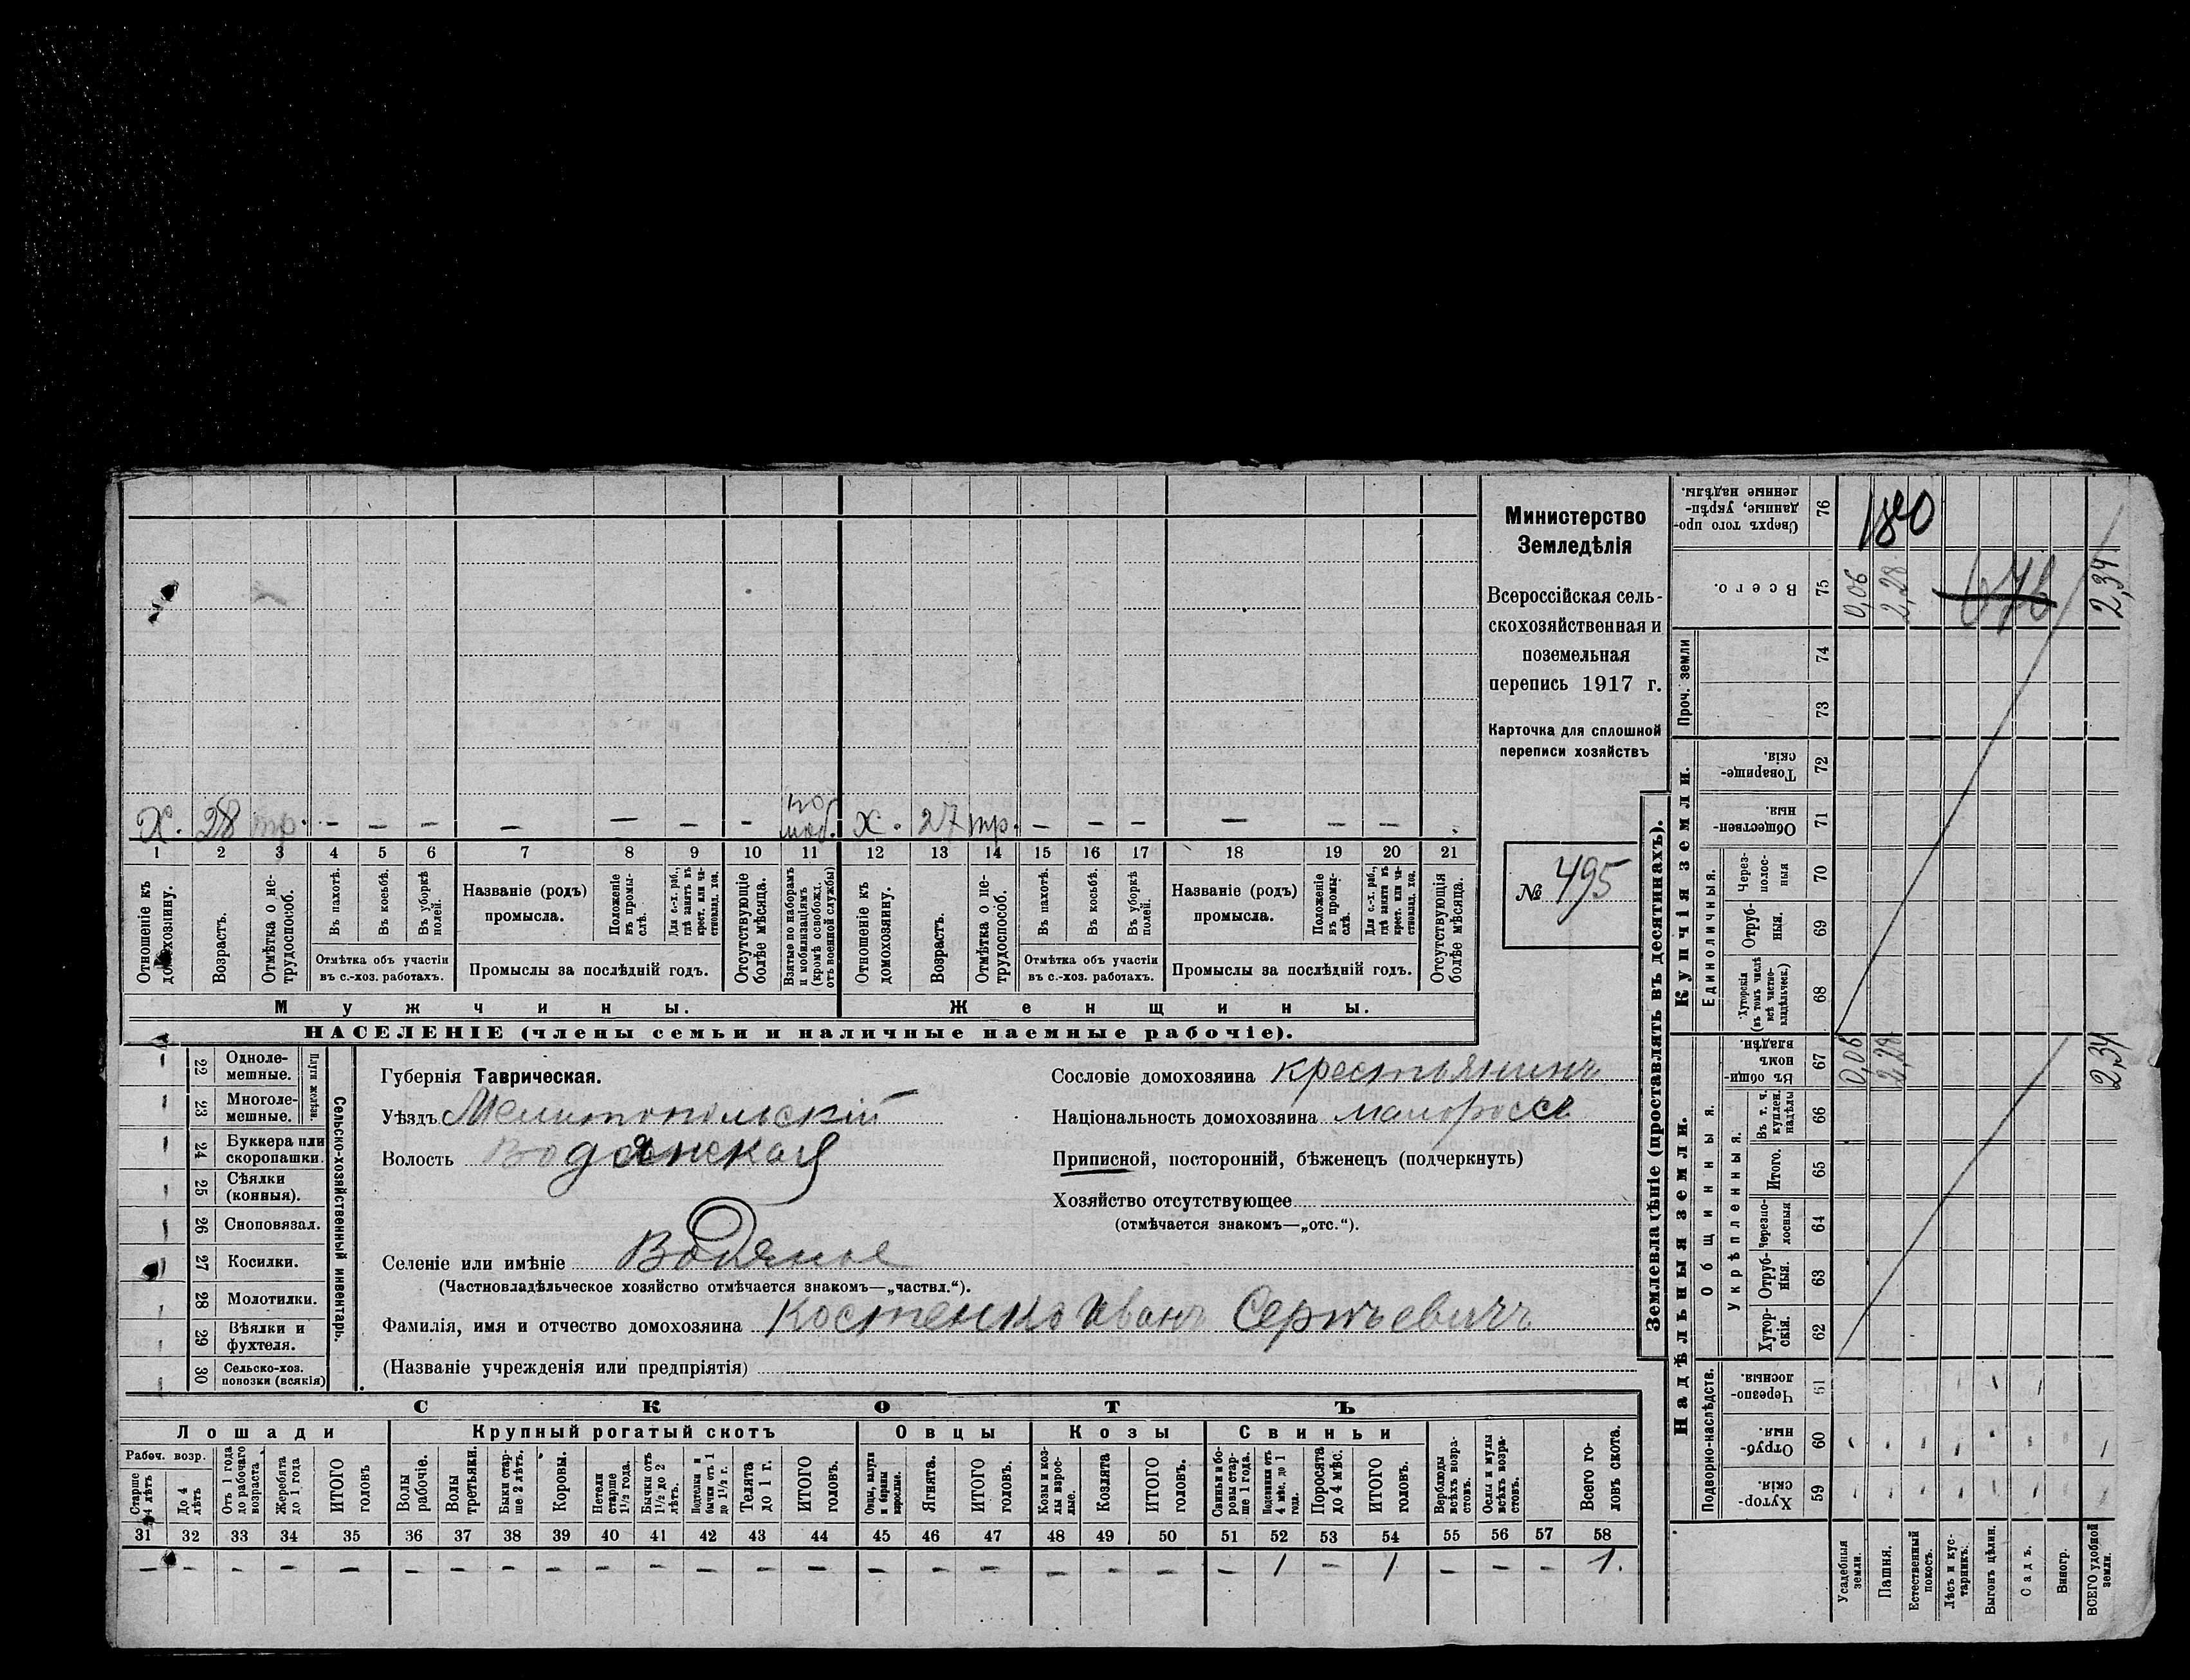 Министерство
Земледѣлія
Всероссійская сель-
скохозяйственная и
поземельная
перепись 1917 г.
Карточка для сплошной
переписи хозяйствъ
№ 495
Х. 28 тр. — — — — — — — по моб. х. 27 тр. — — — — — —
1 2 3 4 5 6 7 8 9 10 11 12 13 14 15 16 17 18 19 20 21
Отношеніе къ домохозяину.
Возрастъ.
Отмѣтка о не-трудоспособ.
Въ пахотѣ.
Въ косьбѣ.
Въ уборкѣ полей.
Отмѣтка объ участіи
въ с.-хоз. работахъ.
Названіе (родъ)
промысла.
Положеніе въ промы-слѣ.
Для с.-х. раб., гдѣ занятъ въ крест. или ча-стновлад. хоз.
Промыслы за послѣдній годъ.
Отсутствующіе болѣе мѣсяца.
Взятые по наборамъ и мобилизаціямъ (кромѣ освобожд. отъ военной службы)
Отношеніе къ домохозяину.
Возрастъ.
Отмѣтка о не-трудоспособ.
Въ пахотѣ.
Въ косьбѣ.
Въ уборкѣ полей.
Отмѣтка объ участіи
въ с.-хоз. работахъ.
Названіе (родъ)
промысла.
Положеніе въ промы-слѣ.
Для с.-х. раб., гдѣ занятъ въ крест. или ча-стновлад. хоз.
Промыслы за послѣдній годъ.
Отсутствующія болѣе мѣсяца.
Мужчины. Женщины.
НАСЕЛЕНІЕ (члены семьи и наличные наемные рабочіе).
Сельско-хозяйственный инвентарь.
Плуги желѣзн.
22 Одноле-мешные.
23 Многоле-мешные.
24 Буккера или скоропашки.
25 Сѣялки (конныя).
26 Сноповязал.
27 Косилки.
28 Молотилки.
29 Вѣялки и фухтеля.
30 Сельско-хоз. повозки (всякія)
Губернія Таврическая.
Уѣздъ Мелитопольскій
Волость Водянская
Селеніе или имѣніе Водяное
(Частновладѣльческое хозяйство отмѣчается знакомъ—„частвл.“).
Фамилія, имя и отчество домохозяина Костенко Иванъ Сергѣевичъ
(Названіе учрежденія или предпріятія)
Сословіе домохозяина крестьянинъ
Національность домохозяина малороссъ
Приписной, посторонній, бѣженецъ (подчеркнуть)
Хозяйство отсутствующее
(отмѣчается знакомъ—„отс.“).
СКОТЪ
Лошади Крупный рогатый скотъ Овцы Козы Свиньи
Рабоч. возр.
Старше 4 лѣтъ
До 4 лѣтъ
Отъ 1 года до рабочаго возраста
Жеребята до 1 года
ИТОГО головъ
Волы рабочіе.
Волы третьяки.
Быки стар-ше 2 лѣтъ.
Коровы.
Нетели старше 1½ года.
Бычки отъ 1½ до 2 лѣтъ.
Подтелки и бычки отъ 1 до 1½ г.
Телята до 1 г.
ИТОГО головъ.
Овцы, валухи и бараны взрослые.
Ягнята.
ИТОГО головъ.
Козы и коз-лы взрос-лые.
Козлята
ИТОГО головъ.
Свиньи и бо-ровы стар-ше 1 года.
Подсвинки отъ 4 мѣс. до 1 года.
Поросята до 4 мѣс.
ИТОГО головъ.
Верблюды всѣхъ возра-стовъ.
Ослы и мулы всѣхъ возра-стовъ.
Всего го-ловъ скота.
31 32 33 34 35 36 37 38 39 40 41 42 43 44 45 46 47 48 49 50 51 52 53 54 55 56 57 58
— — — — — — — — — — — — — — — — — — — — — 1 — 1 — — — 1.
Землевладѣніе (проставлять въ десятинахъ).
Надѣльныя земли. Купчія земли. Проч. земли
Подворно-наслѣдств.
Общинныя.
Укрѣпленныя.
Единоличныя.
Сверхъ того про-данные, укрѣп-ленные надѣлы. 76 180
Всего. 75 0,06 2,28 2,34
74
73
Товарище-скія. 72
Обществен-ныя. 71
Через-полос-ныя 70
Отруб-ныя. 69
Хуторскія (въ томъ числѣ всѣ частно-владѣльческ.) 68
Въ общин-номъ владѣн. 67 0,06 2,28 2,34
Въ т. ч. куплен. надѣлы 66
Итого. 65
Черезпо-лосныя 64
Отруб-ныя. 63
Хутор-скія. 62
Черезпо-лосныя. 61
Отруб-ныя. 60
Хутор-скія 59
Усадебныя земли.
Пашня.
Естественный покосъ.
Лѣсъ и кус-тарникъ.
Выгонъ цѣлин.
Садъ.
Виногр.
ВСЕГО удобной земли.